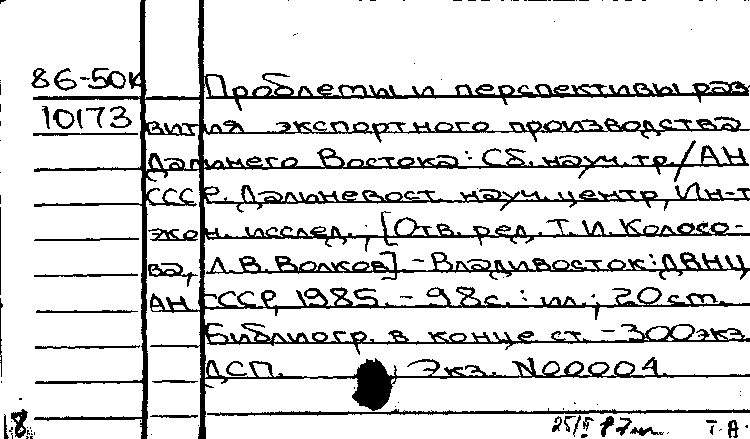 86-50к Проблемы и перспективы раз-
10173 вития экспортного производства
Дальнего Востока: Сб. науч. тр./АН
СССР. Дальневост. науч. центр, Ин-т
экон. исслед.; [Отв. ред. Т.И. Колосо-
ва, Л.В. Волков]. - Владивосток: ДВНЦ
АН СССР, 1985. - 98с.: ил.; 20 ст.
Библиогр. в конце ст. - 300 экз.
ДСП. Экз. N00004.
18 Т. А.